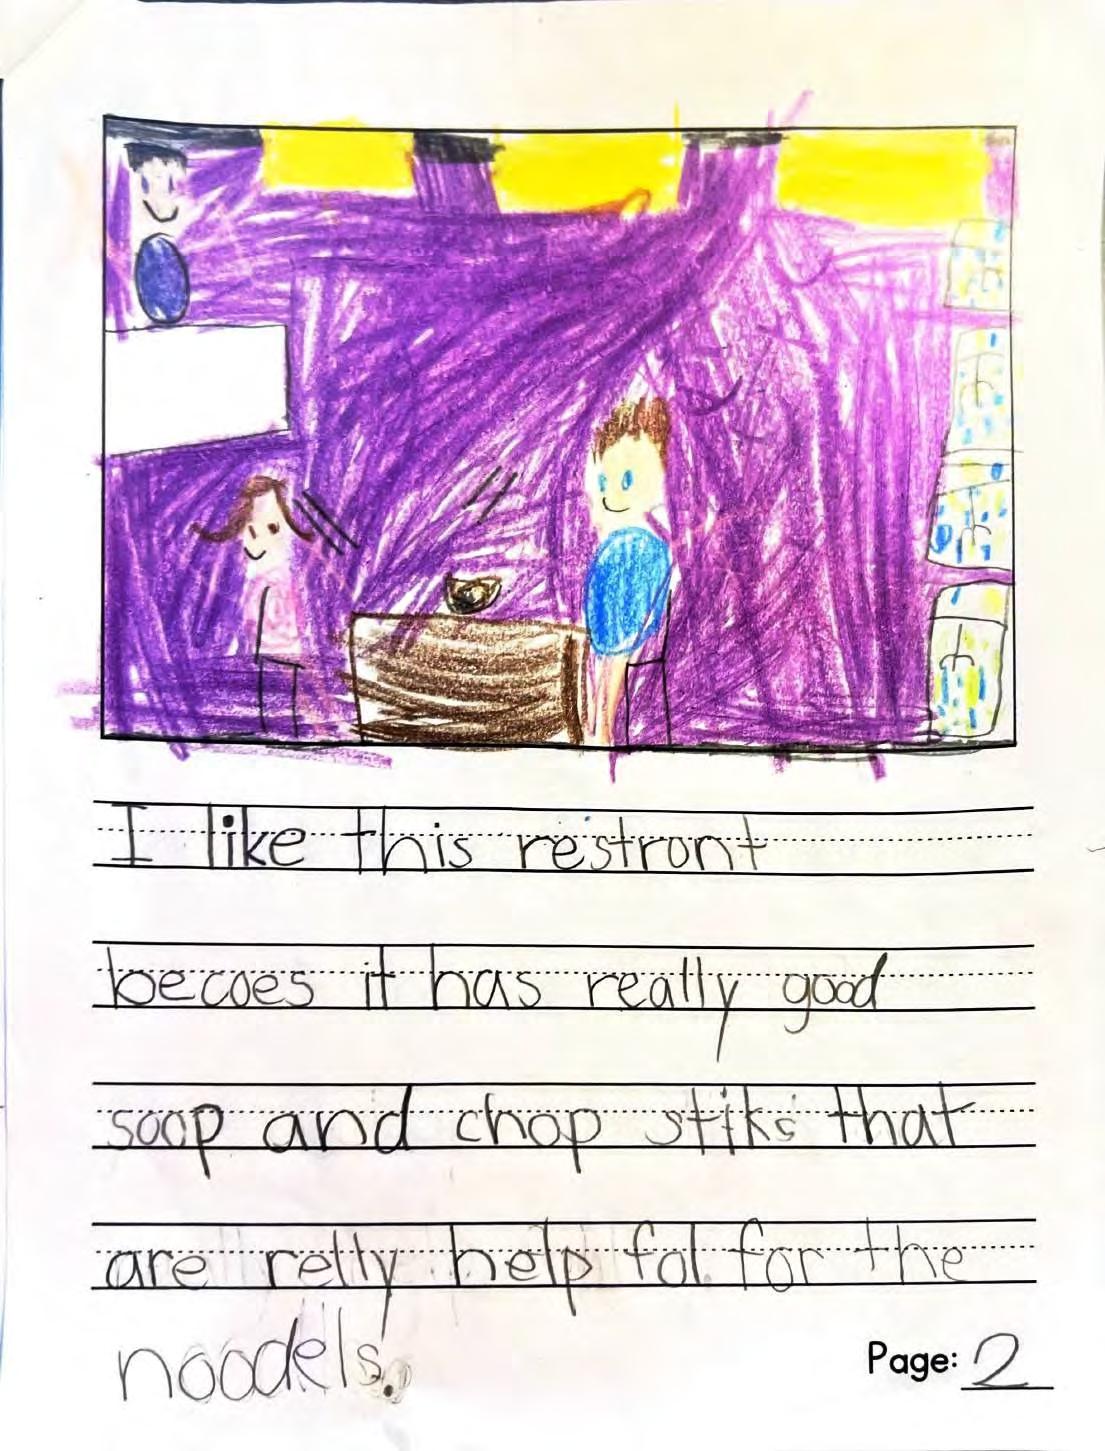 I like this restront
becoes it has really good
soop and chop stiks that
are relly help fol for the
noodels.
Page: 2